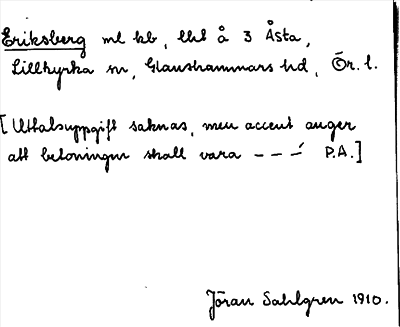 Eriksberg ml kb, lht å 3 Åsta,
Lillkyrka sn, Glanshammars hd, Ör. l.
[Uttalsuppgift saknas, men accent anger
att betoningen skall vara – – –́ P.A.]
Jöran Sahlgren 1910.